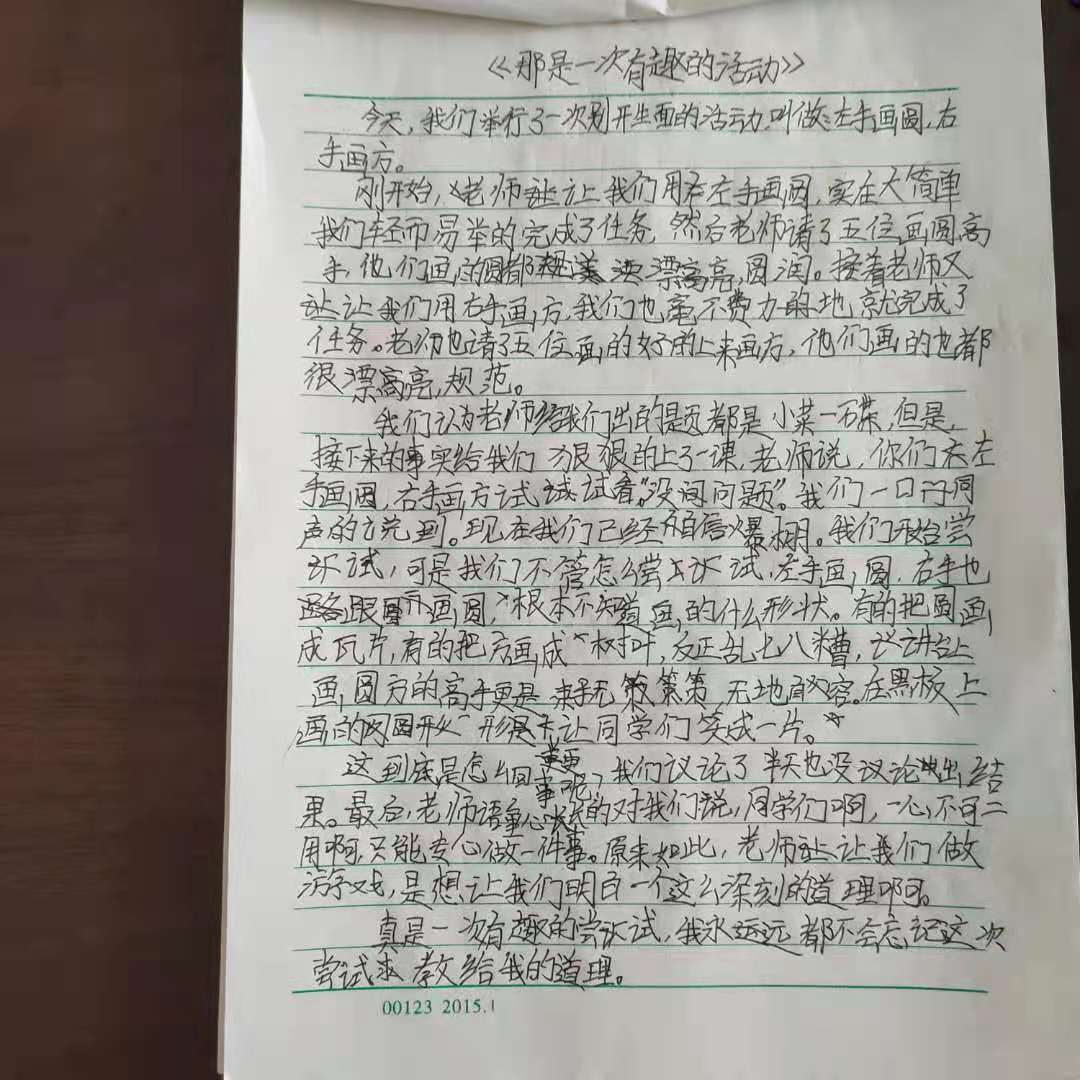 《那是一次有趣的活动》
今天，我们举行了一次别开生面的活动，叫做：左手画圆，右
手画方。
刚开始，老师让我们用左手画圆，实在太简单
我们轻而易举的完成了任务，然后老师请了五位画圆高
手，他们画的圆都漂亮，圆润。接着老师又
让我们用右手画方，我们也毫不费力地就完成了
任务。老师也请了五位画的好的上来画方，他们画的也都
很漂亮，规范。
我们认为老师给我们出的题都是小菜一碟，但是，
接下来的事实给我们狠狠的上了一课，老师说，你们左
手画圆，右手画方试试看。"没问题"。我们一口同
声的说到。现在我们已经自信爆棚。我们开始尝
试，可是我们不管怎么尝试，左手画圆，右手也
跟画圆，根本不知道画的什么形状。有的把圆画
成瓦片，有的把方画成树叶，反正乱七八糟，讲台上
画圆方的高手更是束手无策，无地自容。在黑板上
画的图形让同学们笑成一片。
这到底是怎么回事呢，我们议论了半天也没议论出结
果。最后，老师语重心长的对我们说，同学们啊，一心不可二
用啊，只能专心做一件事。原来如此，老师让我们做
游戏，是想让我们明白一个这么深刻的道理啊。
真是一次有趣的尝试，我永远都不会忘记这次
尝试教给我的道理。
00123 2015.1